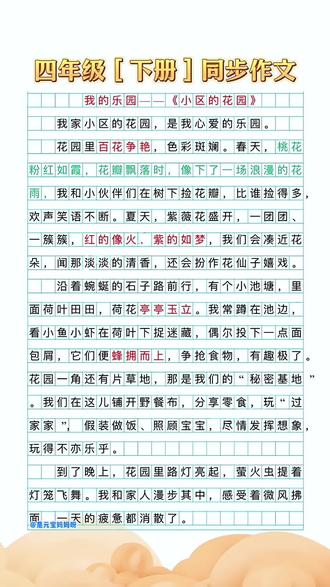 四年级［下册］同步作文
我的乐园——《小区的花园》
我家小区的花园，是我心爱的乐园。
花园里百花争艳，色彩斑斓。春天，桃花
粉红如霞，花瓣飘落时，像下了一场浪漫的花
雨，我和小伙伴们在树下捡花瓣，比谁捡得多，
欢声笑语不断。夏天，紫薇花盛开，一团团、
一簇簇，红的像火，紫的如梦，我们会凑近花
朵，闻那淡淡的清香，还会扮作花仙子嬉戏。
沿着蜿蜒的石子路前行，有个小池塘，里
面荷叶田田，荷花亭亭玉立。我常蹲在池边，
看小鱼小虾在荷叶下捉迷藏，偶尔投下一点面
包屑，它们便蜂拥而上，争抢食物，有趣极了。
花园一角还有片草地，那是我们的“秘密基地”
。我们在这儿铺开野餐布，分享零食，玩“过
家家”，假装做饭、照顾宝宝，尽情发挥想象，
玩得不亦乐乎。
到了晚上，花园里路灯亮起，萤火虫提着
灯笼飞舞。我和家人漫步其中，感受着微风拂
面，一天的疲惫都消散了。
@是元宝妈妈呀